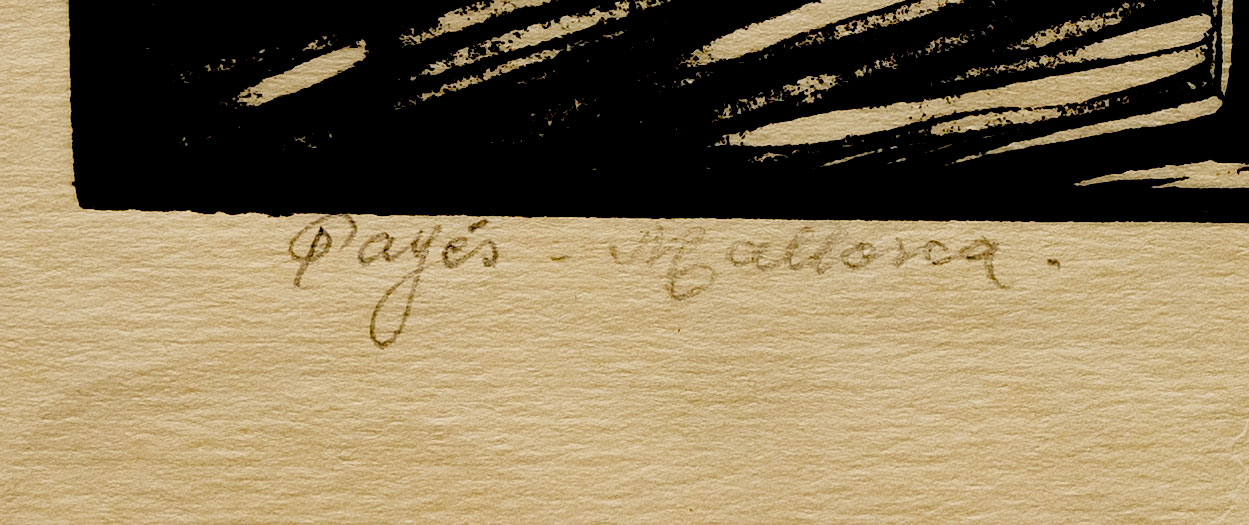 Payés - Mallorca.